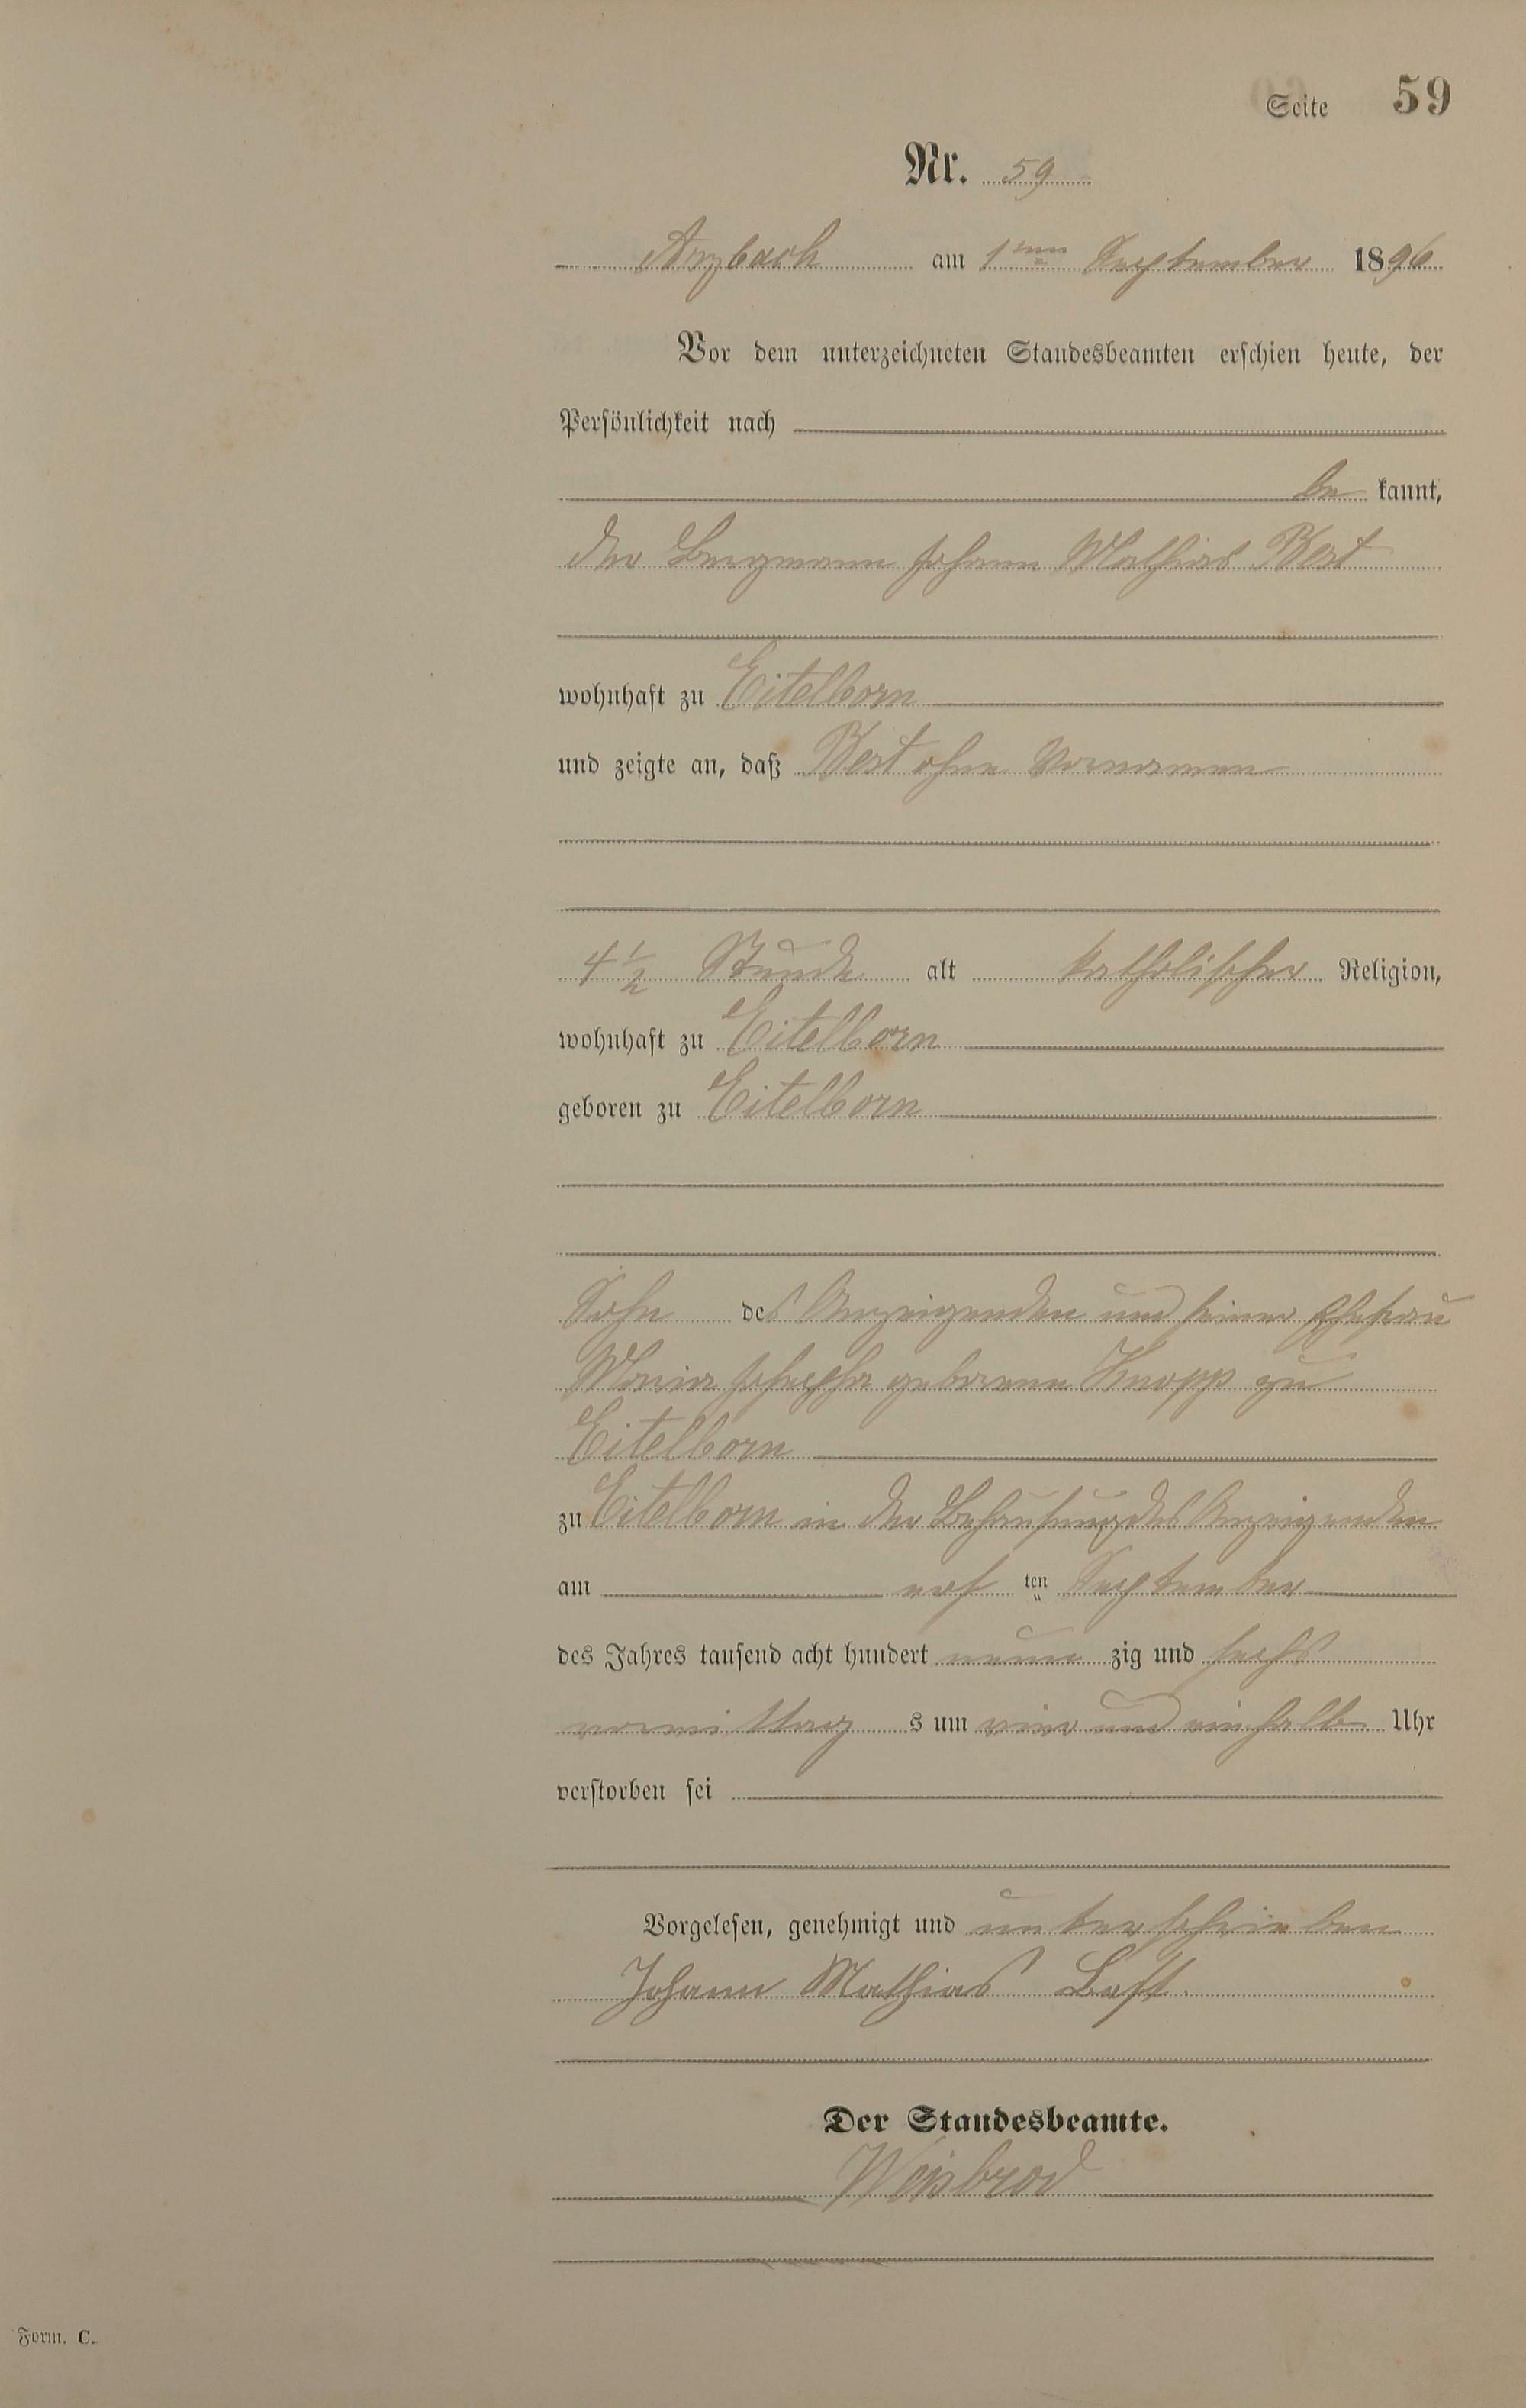 Seite 59
Nr. 59
Arzbach am 1ten September 1896
Vor dem unterzeichneten Standesbeamten erschien heute, der
Persönlichkeit nach
be kannt,
der Bergmann Johann Mathias Best
wohnhaft zu Eitelborn
und zeigte an, daß Best ohne Vornamen
4 1/2 Stunde alt katholischer Religion,
wohnhaft zu Eitelborn
geboren zu Eitelborn
Sohn des Anzeigenden und seiner Ehefrau
Maria Josepha geborene Knopp zu
Eitelborn
zu Eitelborn in der Behausung des Anzeigenden
am ers ten September
des Jahres tausend acht hundert neun zig und sechs
vormittag s um vier und einhalb Uhr
verstorben sei
Vorgelesen, genehmigt und unterschrieben
Johann Mathias Best.
Der Standesbeamte.
Weisbrod
Form. C.